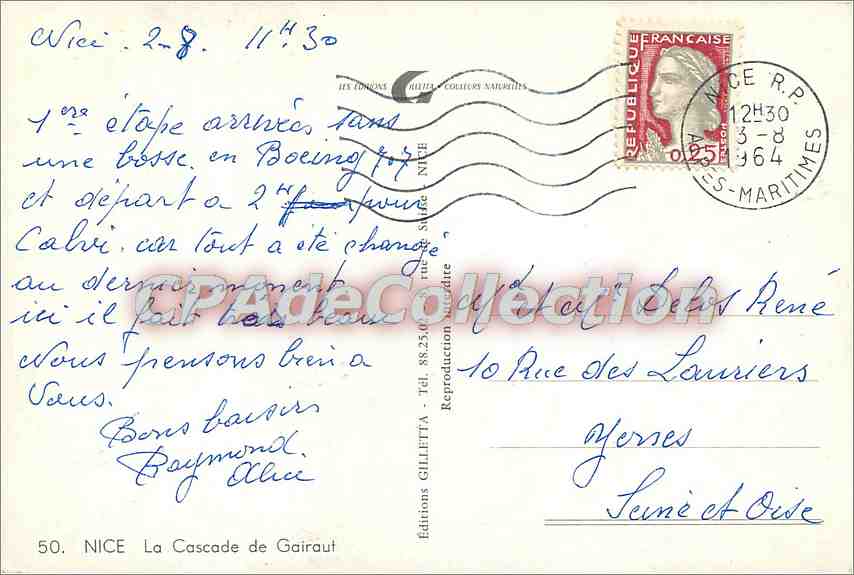 Nice. 2-8. 11H.30
1ère étape arrivées sans
une bosse. en Boeing 707
et départ a 2H pour
Calvi. car tout a été changé
au dernier moment
ici il fait très beau
Nous pensons bien a
Vous.
Bons baisers
Raymond.
Alice
50. NICE La Cascade de Gairaut
LES EDITIONS GILLETTA - COULEURS NATURELLES
Éditions GILLETTA - Tél. 88.25.0 rue de Suisse - NICE
Reproduction interdite
REPUBLIQUE FRANÇAISE
0,25
NICE R.P.
12H30
3-8
1964
ALPES-MARITIMES
Md et Mr Delos René
10 Rue des Lauriers
Yerres
Seine et Oise
CPAdeCollection